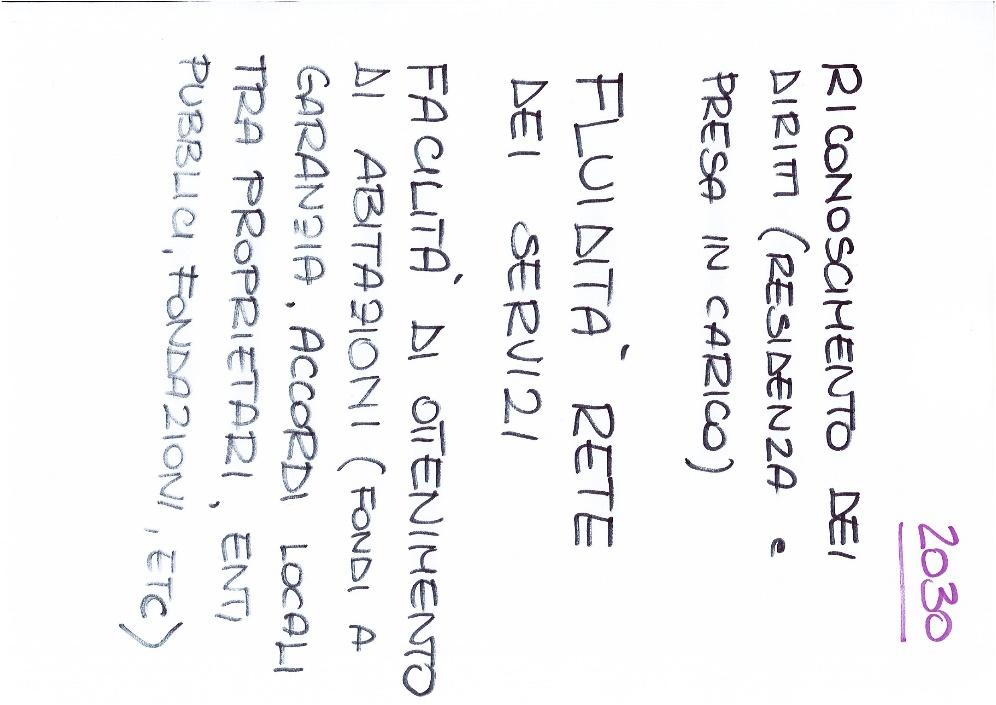 2030
RICONOSCIMENTO DEI
DIRITTI (RESIDENZA e
PRESA IN CARICO)
FLUIDITÀ RETE
DEI SERVIZI
FACILITÀ DI OTTENIMENTO
DI ABITAZIONI (FONDI A
GARANZIA, ACCORDI LOCALI
TRA PROPRIETARI, ENTI
PUBBLICI, FONDAZIONI, ETC)